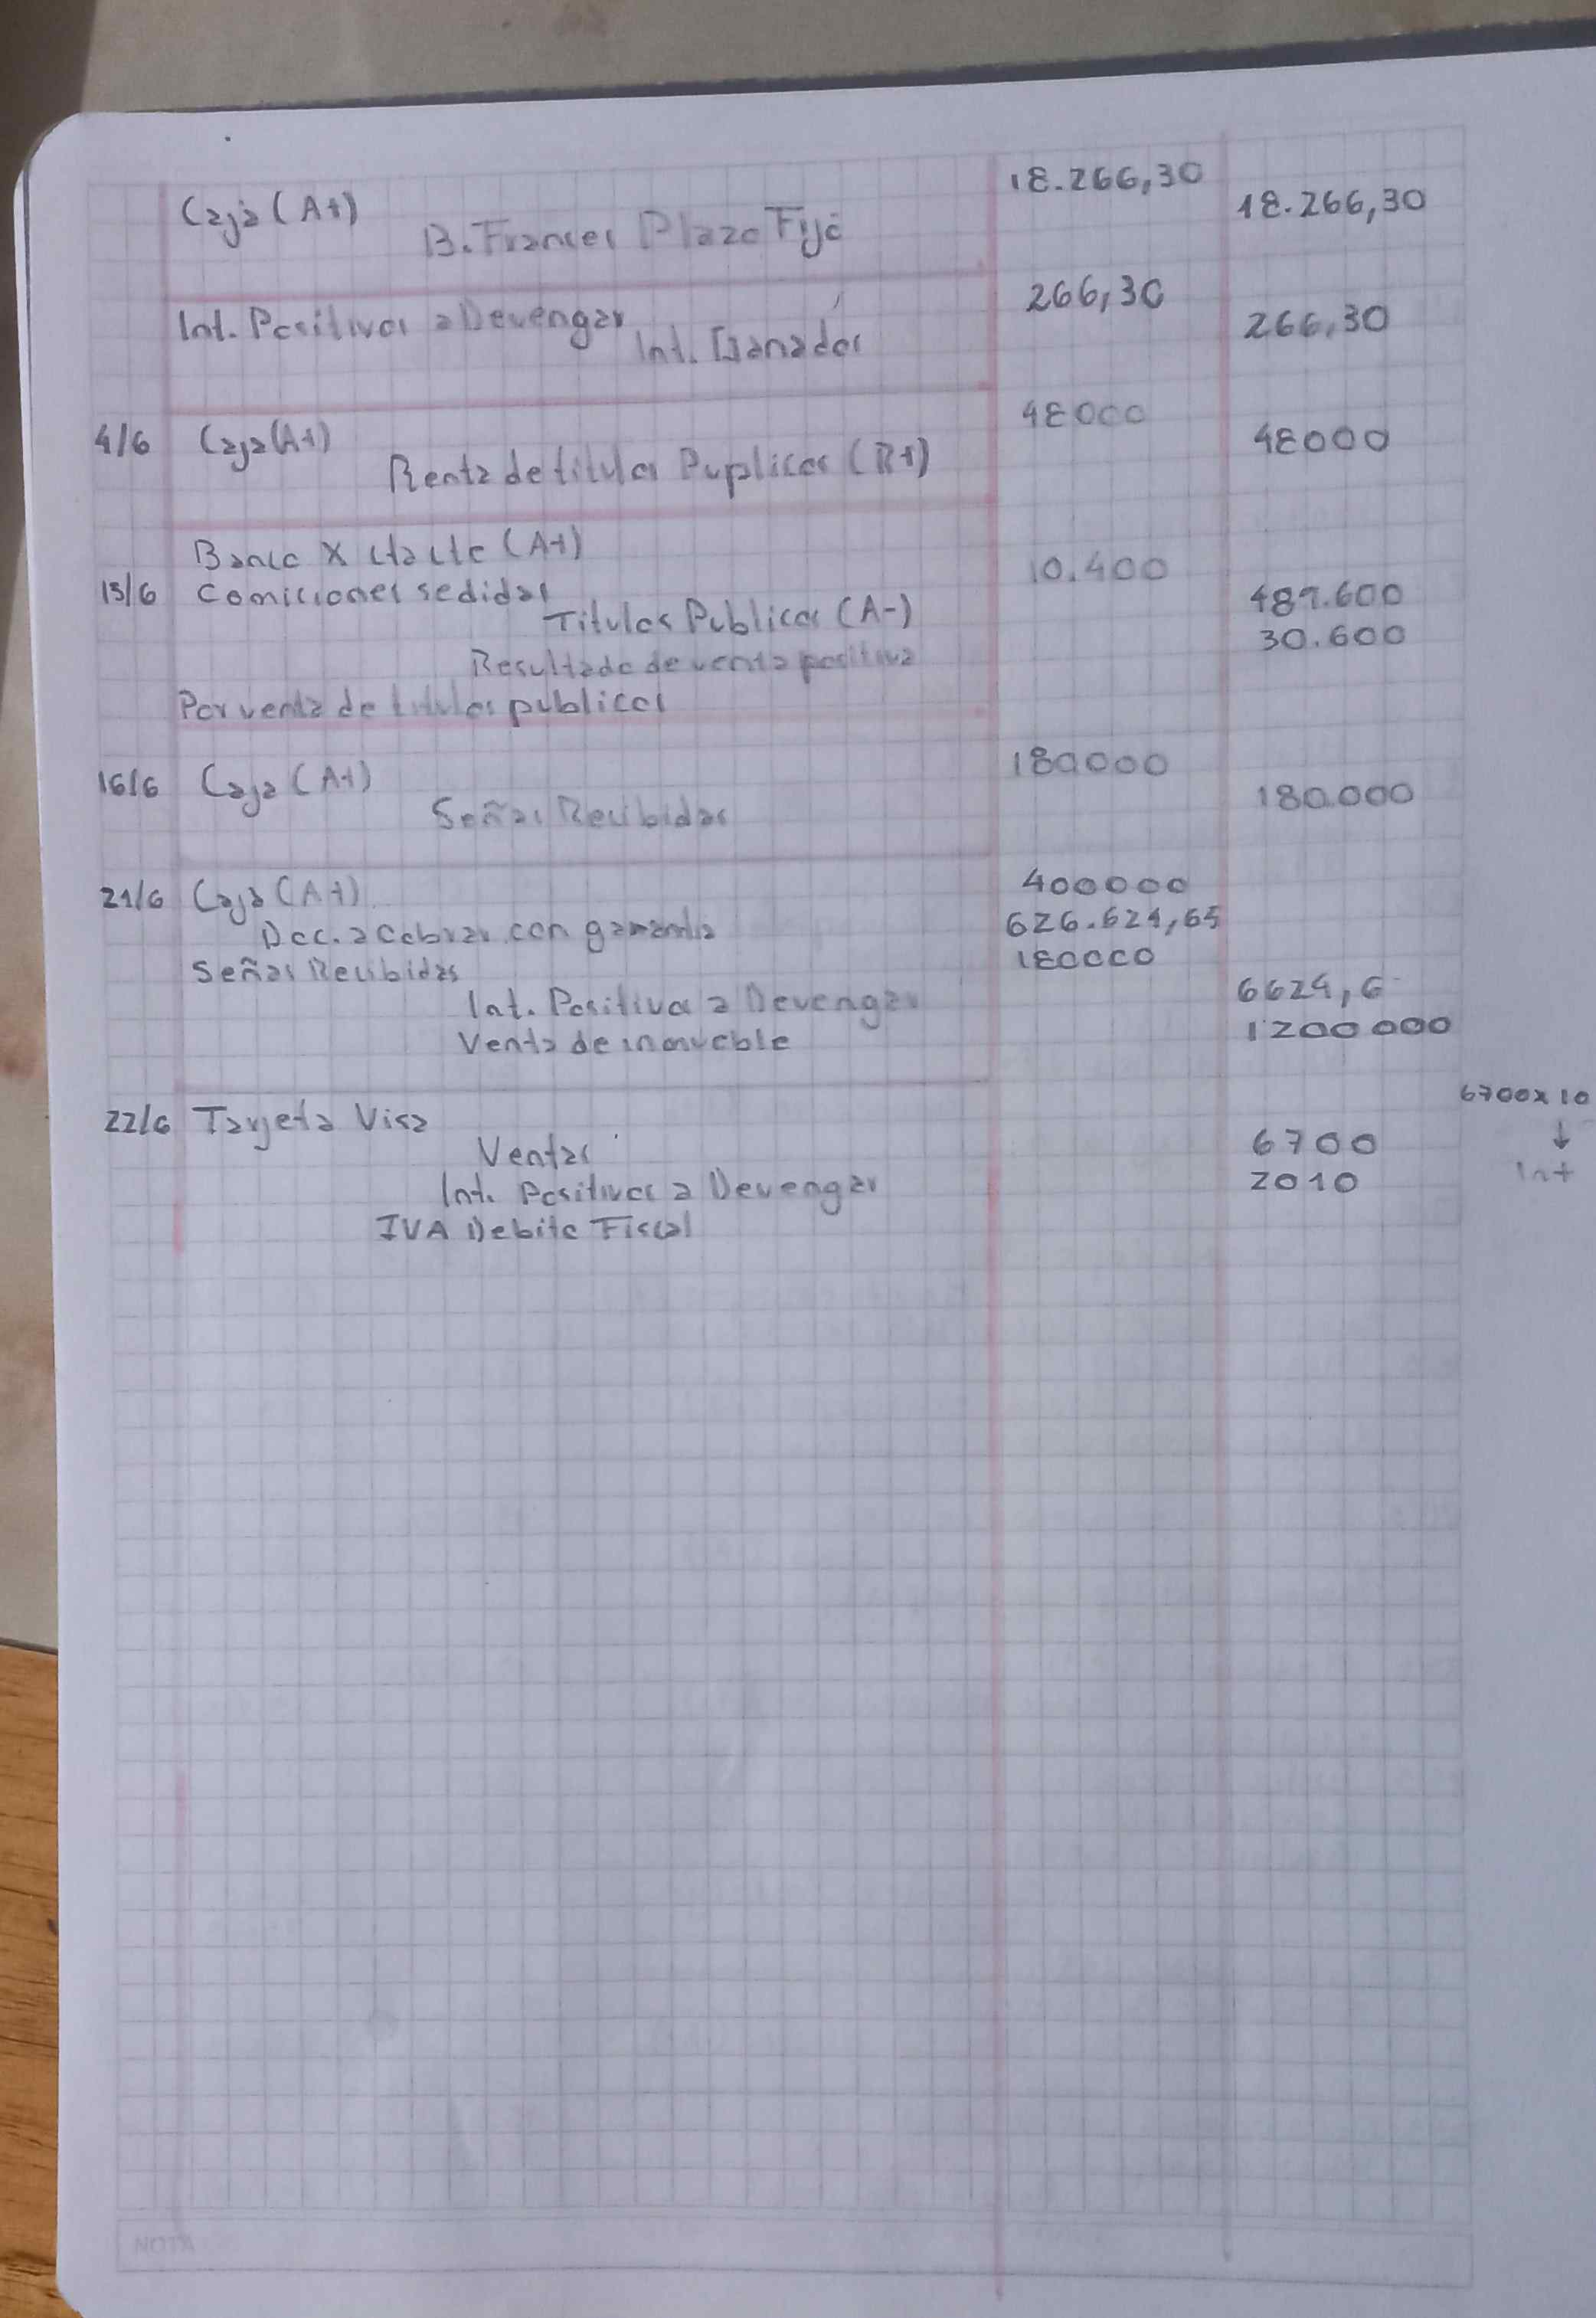 Caja (A+) 18.266,30
B. Frances Plazo Fijo 18.266,30
Int. Positivos a Devengar 266,30
Int. Ganados 266,30
4/6 Caja (A+) 48000
Renta de titulos Puplicos (R+) 48000
Banco X cta cte (A+)
15/6 Comiciones sedidas 10.400
Titulos Publicos (A-) 489.600
Resultado de venta positiva 30.600
Por venta de titulos publicos
16/6 Caja (A+) 180000
Señas Recibidas 180.000
21/6 Caja (A+) 400000
Doc. a Cobrar con garantia 626.624,65
Señas Recibidas 180000
Int. Positivos a Devengar 6624,6
Venta de inmueble 1200000
22/6 Tarjeta Visa
Ventas 6700
Int. Positivos a Devengar 2010
IVA Debito Fiscal
6700x10
↓
Int
NOTA